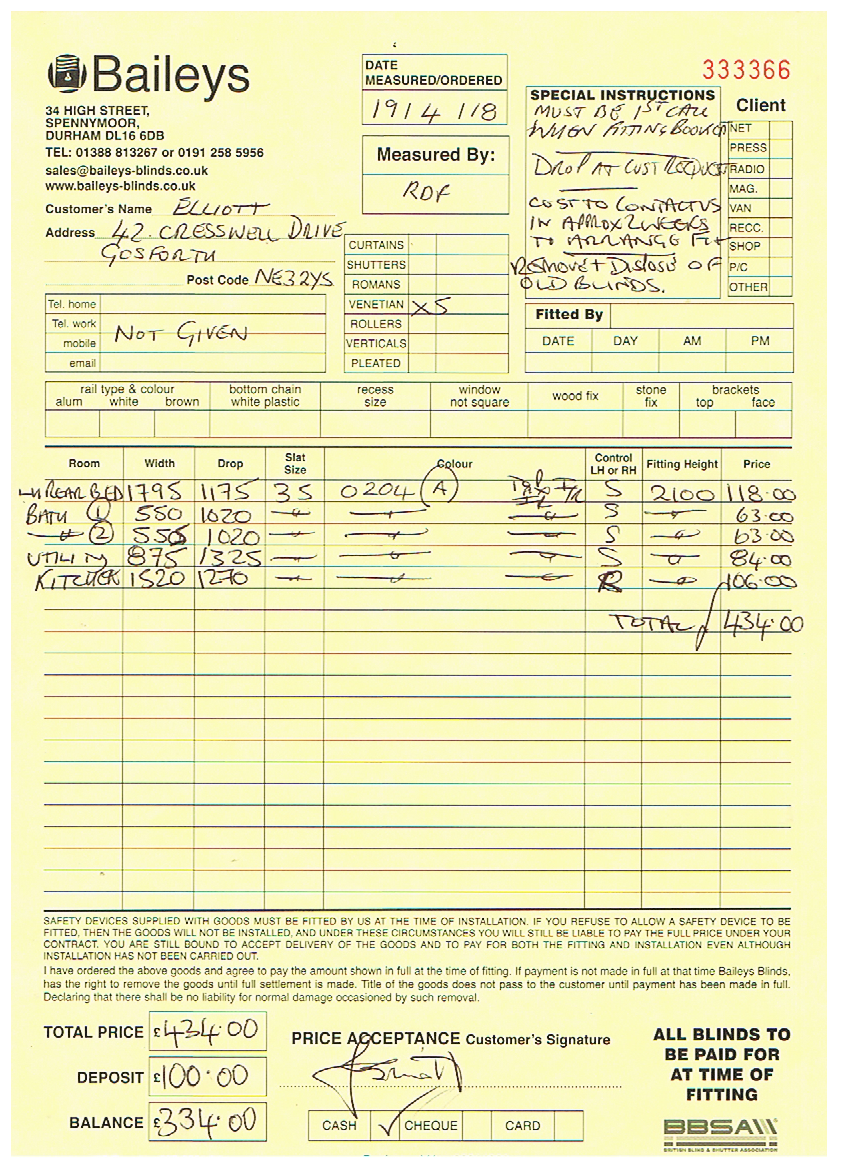 Baileys
34 HIGH STREET,
SPENNYMOOR,
DURHAM DL16 6DB
TEL: 01388 813267 or 0191 258 5956
sales@baileys-blinds.co.uk
www.baileys-blinds.co.uk
Customer's Name ELLIOTT
Address 42. CRESSWELL DRIVE
GOSFORTH
Post Code NE32YS
Tel. home
Tel. work
mobile NOT GIVEN
email
DATE
MEASURED/ORDERED
19/4/18
Measured By:
RDF
CURTAINS
SHUTTERS
ROMANS
VENETIAN X5
ROLLERS
VERTICALS
PLEATED
333366
SPECIAL INSTRUCTIONS
MUST BE 1ST CALL
WHEN FITTING BOOKED
DROP AT CUST REQUEST
COST TO CONTACT US
IN APPROX 2 WEEKS
TO ARRANGE FIT
REMOVE + DISPOSE OF
OLD BLINDS.
Client
NET
PRESS
RADIO
MAG.
VAN
RECC.
SHOP
P/C
OTHER
Fitted By
DATE DAY AM PM
rail type & colour bottom chain recess window wood fix stone brackets
alum white brown white plastic size not square fix top face
Room Width Drop Slat Size Colour Control LH or RH Fitting Height Price
REAR BED 1795 1175 35 0204 (A) S 2100 118.00
BATH (1) 550 1020 S 63.00
(2) 555 1020 S 63.00
UTILITY 875 1325 S 84.00
KITCHEN 1520 1270 R 106.00
TOTAL 434.00
SAFETY DEVICES SUPPLIED WITH GOODS MUST BE FITTED BY US AT THE TIME OF INSTALLATION. IF YOU REFUSE TO ALLOW A SAFETY DEVICE TO BE
FITTED, THEN THE GOODS WILL NOT BE INSTALLED, AND UNDER THESE CIRCUMSTANCES YOU WILL STILL BE LIABLE TO PAY THE FULL PRICE UNDER YOUR
CONTRACT. YOU ARE STILL BOUND TO ACCEPT DELIVERY OF THE GOODS AND TO PAY FOR BOTH THE FITTING AND INSTALLATION EVEN ALTHOUGH
INSTALLATION HAS NOT BEEN CARRIED OUT.
I have ordered the above goods and agree to pay the amount shown in full at the time of fitting. If payment is not made in full at that time Baileys Blinds,
has the right to remove the goods until full settlement is made. Title of the goods does not pass to the customer until payment has been made in full.
Declaring that there shall be no liability for normal damage occasioned by such removal.
TOTAL PRICE £434.00
DEPOSIT £100.00
BALANCE £334.00
PRICE ACCEPTANCE Customer's Signature
CASH ✓ CHEQUE CARD
ALL BLINDS TO
BE PAID FOR
AT TIME OF
FITTING
BBSA
BRITISH BLIND & SHUTTER ASSOCIATION